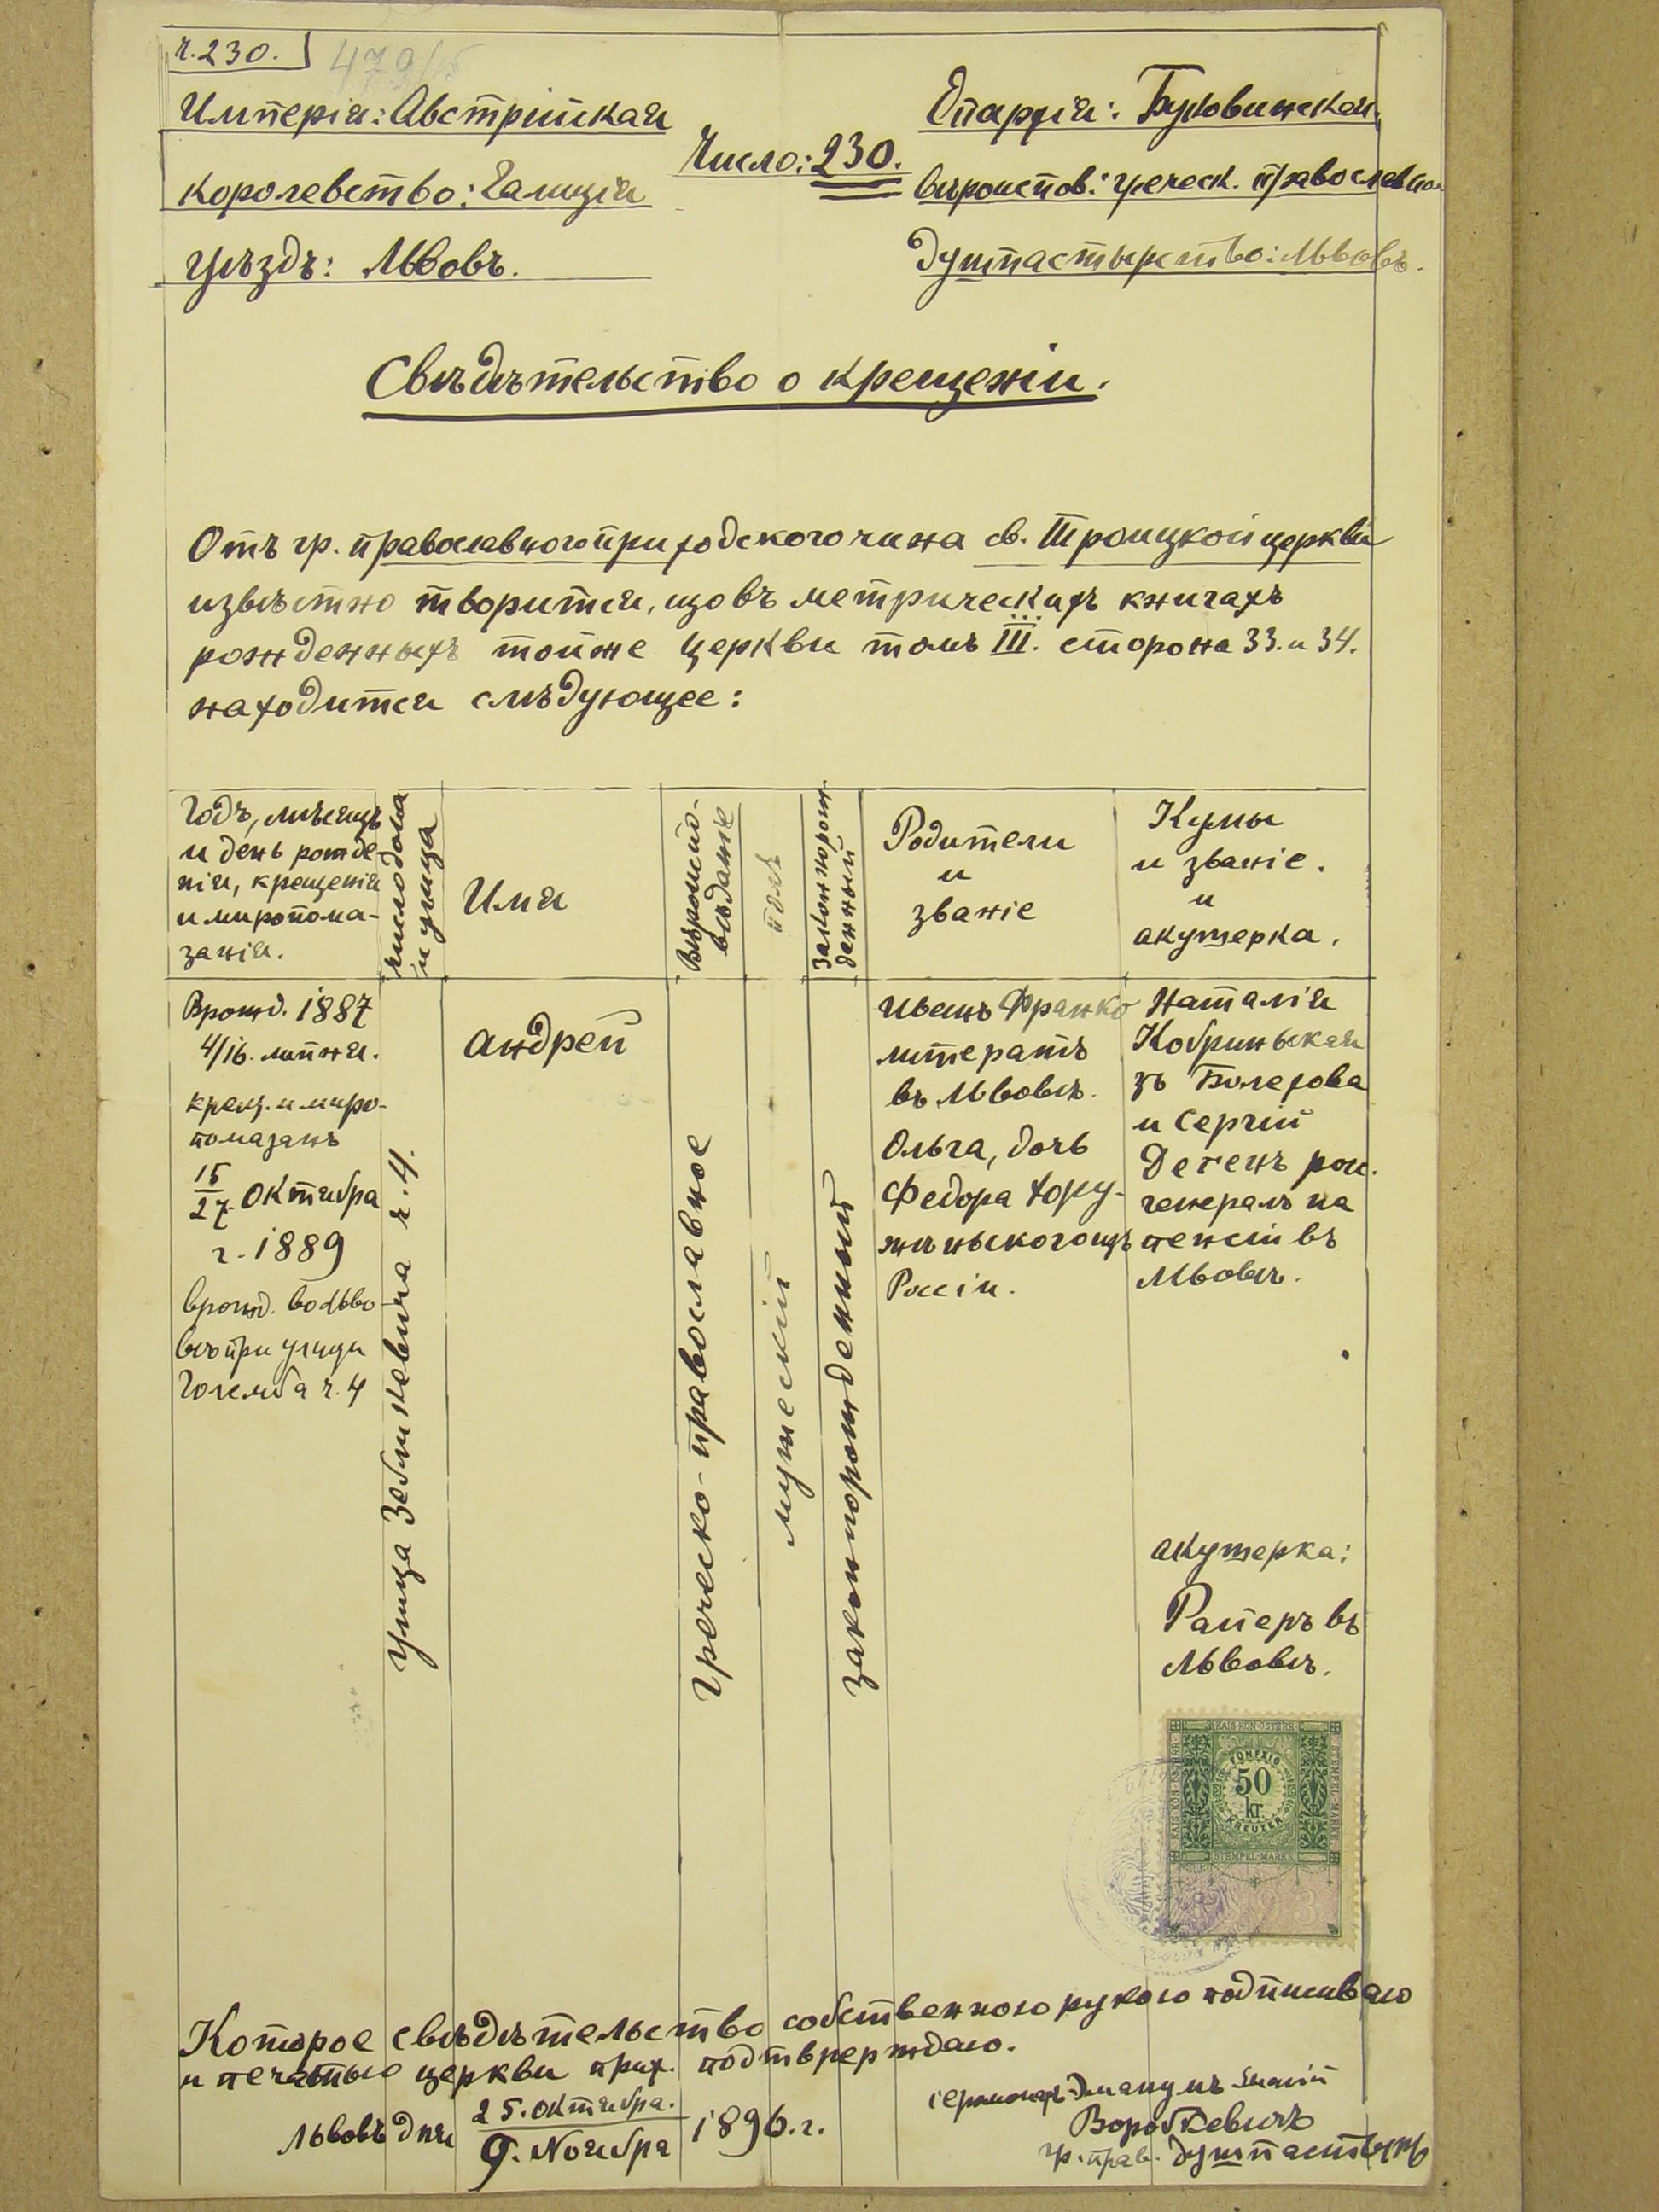 ч.230.
479/15
Имперія: Австрійская
Королевство: Галиція
Уѣздъ: Львовъ.
Число: 230.
Епархія: Буковинская.
Вѣроиспов.: греческ. православное
Душпастырство: Львовъ.
Свѣдѣтельство о крещеніи.
Отъ гр. православного приходского чина св. Троицкой церкви
извѣстно творится, що въ метрическихъ книгахъ
рожденныхъ тойже церкви томъ III. сторона 33. и 34.
находится слѣдующее:
Годъ, мѣсяцъ
и день рожде-
нія, крещенія
и миропома-
занія.
число дома
и улица
Имя
Вѣроиспо-
вѣданіе
полъ
законнорож-
денный
Родители
и
званіе
Кумы
и званіе.
и
акушерка.
Врожд. 1887
4/16. липня.
крещ. и миро-
помазанъ
15/27. Октября
г. 1889
врожд. во Льво-
вѣ при улици
Голембя ч. 4
улица Зебликевича ч. 4.
Андрей
Греческо-православное
мужескій
законнорожденный
Иванъ Франко
литератъ
въ Львовѣ.
Ольга, дочь
Федора Хору-
жинского изъ
Россіи.
Наталія
Кобриньская
зъ Болехова
и Сергій
Дегенъ рос.
генералъ на
пенсіи въ
Львовѣ.
акушерка:
Рапперъ въ
Львовѣ.
KAIS. KÖN. ÖSTERR.
KAIS. KÖN. ÖSTERR.
STEMPEL-MARKE
FÜNFZIG
50
kr.
KREUZER
STEMPEL-MARKE
1893
Которое свѣдѣтельство собственною рукою подписываю
и печатью церкви прих. подтверждаю.
Львовъ дня 25. Октября. / 9. Ноября 1896. г.
іеромонахъ Эмануилъ
Воробкевичъ
гр. прав. душпастырь